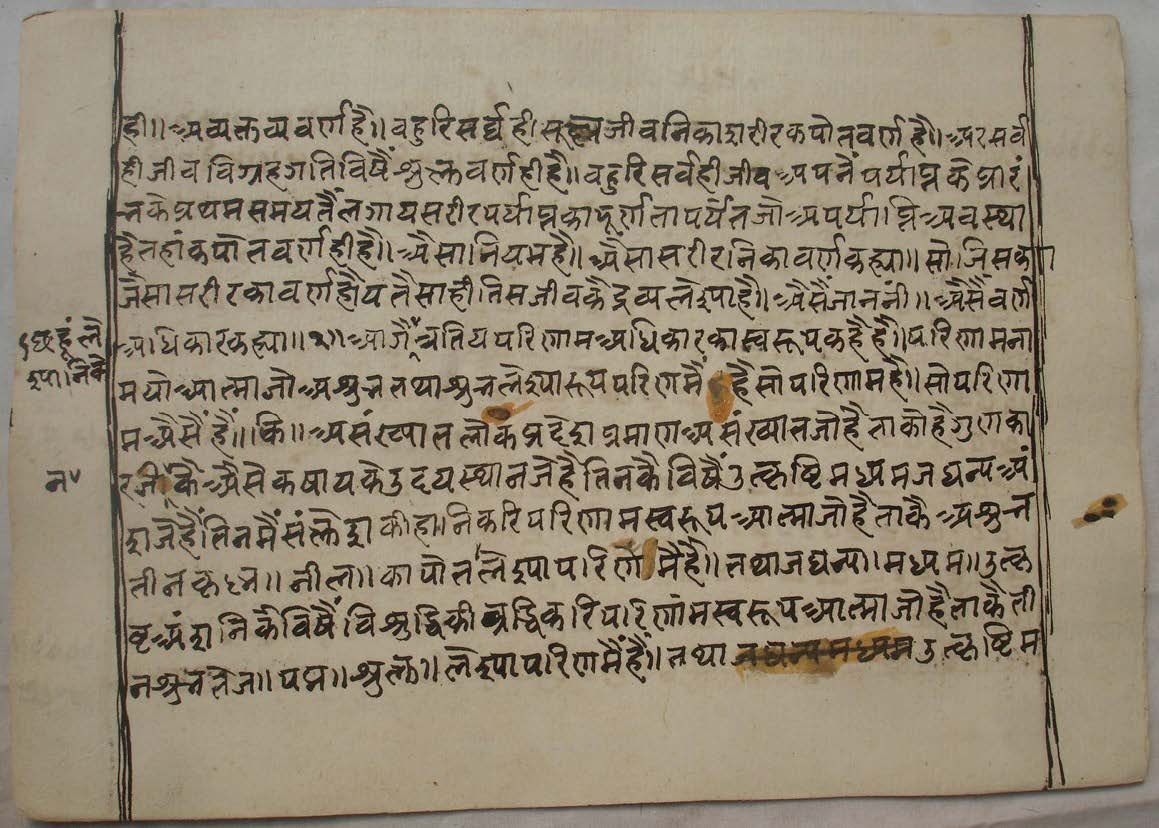 ही॥ अव्यक्तव्य वर्ण है॥ बहुरि सर्व ही सूक्ष्म जीवनिका शरीर कपोत वर्ण है॥ अर सर्व
ही जीव विग्रहगति विषैं शुक्ल वर्ण ही है॥ बहुरि सर्व ही जीव अपनें पर्याप्त के प्रारं
भ के प्रथम समय तैं लगाय सरीर पर्याप्त का पूर्णता पर्यंत जो अपर्याप्ति अवस्था
है तहां कपोत वर्ण ही है॥ औसा नियम है॥ औसा सरीरनिका वर्ण कह्या॥ सो जिसका
जैसा सरीर का वर्ण होय तैसा ही तिस जीव कै द्रव्य लेश्या है॥ औसैं जाननी॥ औसैं वर्ण
अधिकार कह्या॥ २॥ आगैं त्रतिय परिणाम अधिकार का स्वरूप कहै है॥ परिणाम ना
म यो आत्मा जो अशुभ तथा शुभ लेश्यारूप परिणमै है सो परिणाम है॥ सो परिणा
म औसैं हैं॥ कि॥ असंख्यात लोक प्रदेश प्रमाण असंख्यात जो है ताको है गुणका
र जिंकै औसे कषाय के उदय स्थान जे है तिनकै विषैं उत्कृष्टि मध्यम जघन्य अं
श जे हैं तिनमैं संक्लेश की हानि करि परिणाम स्वरूप आत्मा जो है ताकै अशुभ
तीन कृष्न॥ नील॥ कापोत लेश्या परिणमै है॥ तथा जघन्य॥ मध्यम॥ उत्कृ
ष्ट अंशनि के विषैं विशुद्धि की व्रद्धि करि परिणाम स्वरूप आत्मा जो है ताकै ती
न शुभ तेज॥ पद्म॥ शुक्ल॥ लेश्या परिणमैं हैं॥ तथा जघन्य मध्यम उत्कृष्टि म
छहूं ले
श्यानिके
न